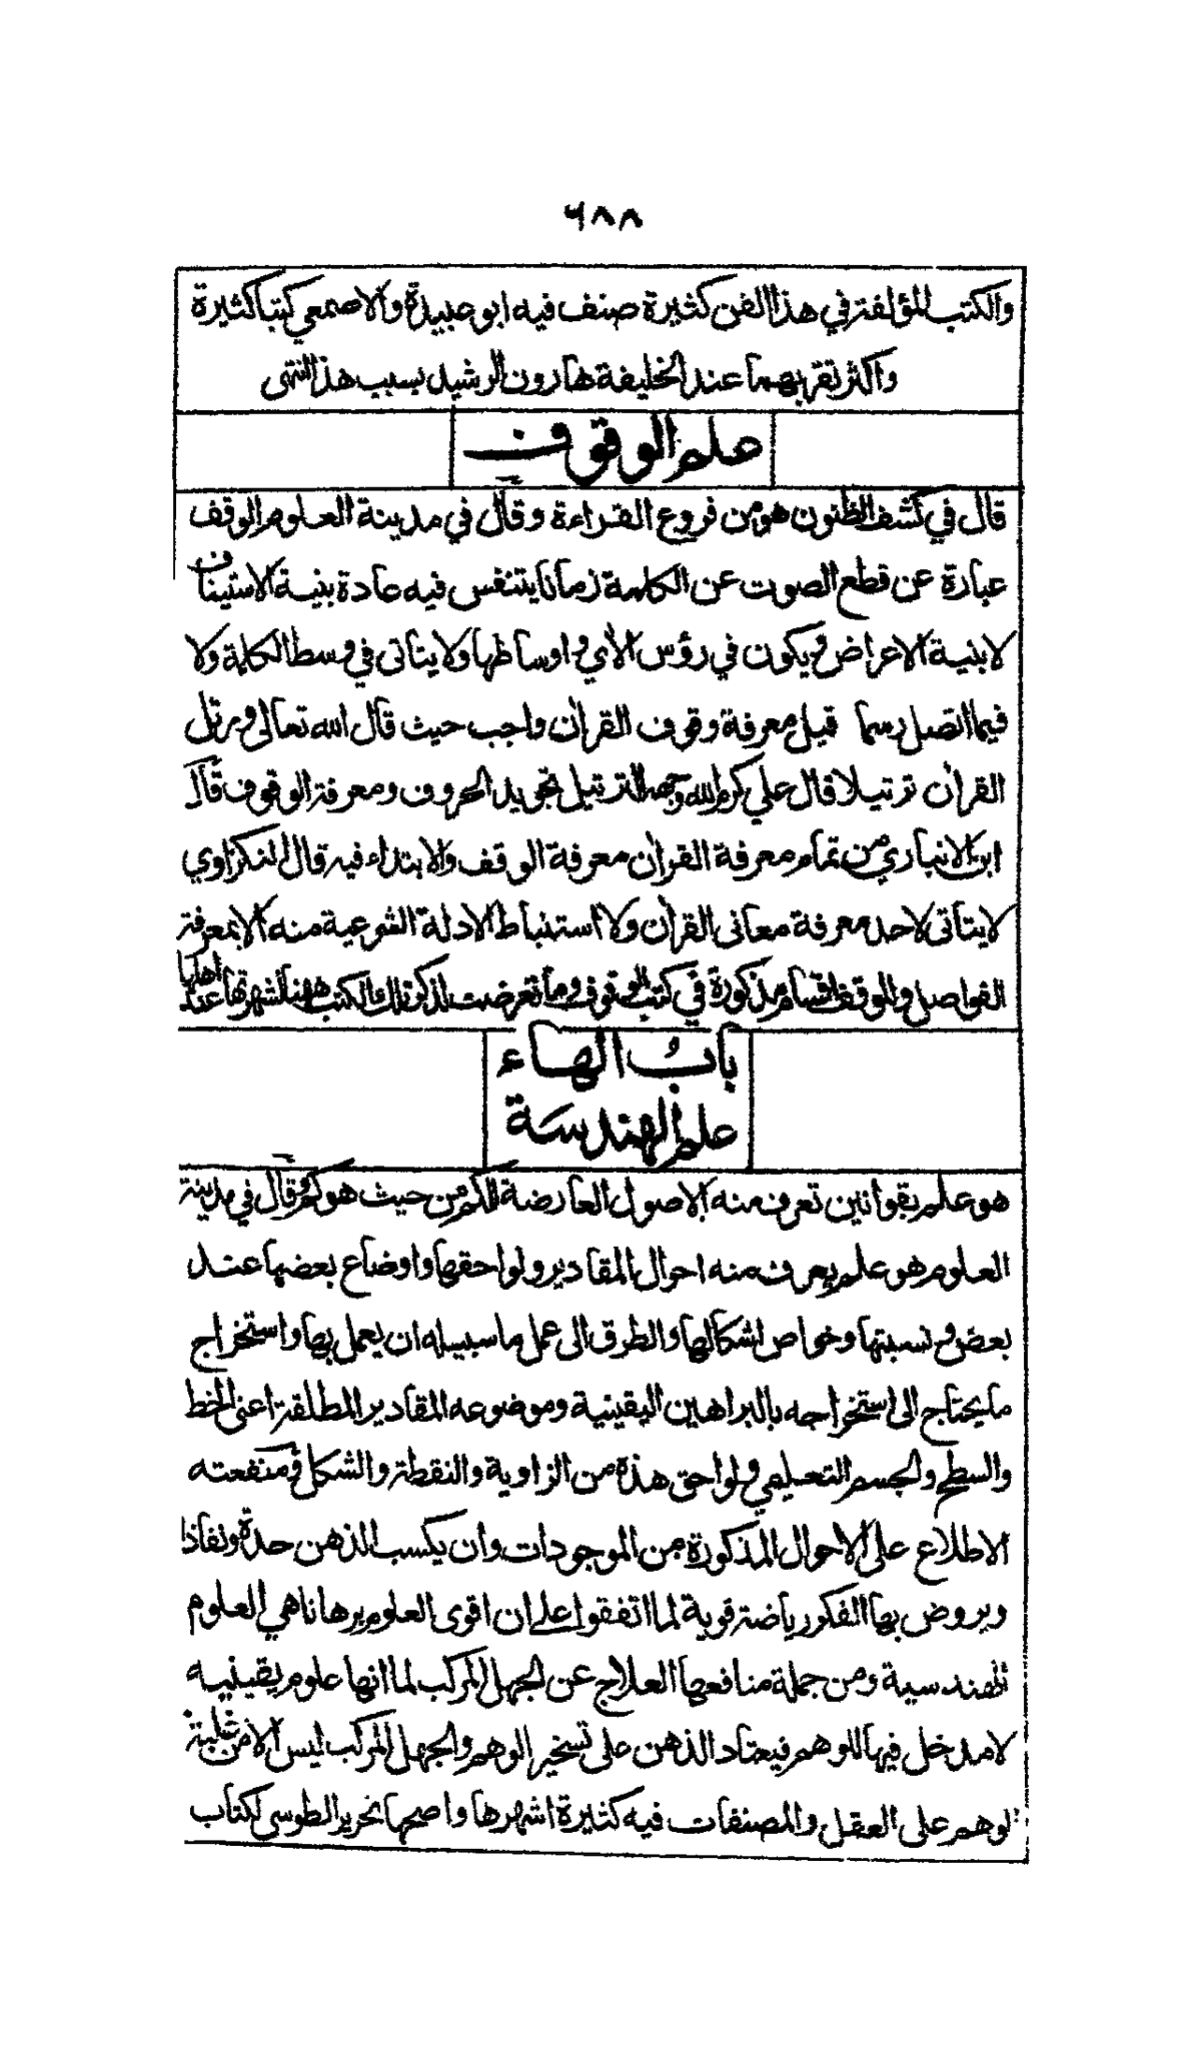 ٦٨٨
والكتب المؤلفة في هذا الفن كثيرة صنف فيه ابو عبيدة والاصمعي كتبا كثيرة
واكثر تقربهما عند الخليفة هارون الرشيد بسبب هذا انتهى
علم الوقوف
قال في كشف الظنون هو من فروع القراءة وقال في مدينة العلوم الوقف
عبارة عن قطع الصوت عن الكلمة زمانا يتنفس فيه عادة بنية الاستيناف
لا بنية الاعراض ويكون في رؤس الأي واوساطها ولا يتاتى في وسط الكلمة ولا
فيما اتصل رسما قيل معرفة وقوف القرأن واجب حيث قال الله تعالى ورتل
القرأن ترتيلا قال علي كرم الله وجهه الترتيل تجويد الحروف ومعرفة الوقوف قال
ابن الانباري من تمام معرفة القرأن معرفة الوقف والابتداء فيه قال النكزاوي
لا يتاتى لاحد معرفة معانى القرأن ولا استنباط الادلة الشرعية منه الا بمعرفة
الفواصل وللوقف اقسام مذكورة في كتب الوقوف وما تعرضت لذكر تلك الكتب ههنا لشهرتها عند اهلها
باب الهاء
علم الهندسة
هو علم بقوانين تعرف منه الاصول العارضة للكم من حيث هو كم وقال في مدينة
العلوم هو علم يعرف منه احوال المقادير ولواحقها واوضاع بعضها عند
بعض ونسبتها وخواص اشكالها والطرق الى عمل ما سبيله ان يعمل بها واستخراج
ما يحتاج الى استخراجه بالبراهين اليقينية وموضوعه المقادير المطلقة اعنى الخط
والسطح والجسم التعليمي ولواحق هذه من الزاوية والنقطة والشكل ومنفعته
الاطلاع على الاحوال المذكورة من الموجودات وان يكسب الذهن حدة ونفاذا
ويروض بها الفكر رياضة قوية لما اتفقوا على ان اقوى العلوم برهانا هي العلوم
الهندسية ومن جملة منافعها العلاج عن الجهل المركب لما انها علوم يقينيه
لا مدخل فيها للوهم فيعتاد الذهن على تسخير الوهم والجهل المركب ليس الا من غلبة
الوهم على العقل والمصنفات فيه كثيرة اشهرها واصحها تحرير الطوسى لكتاب